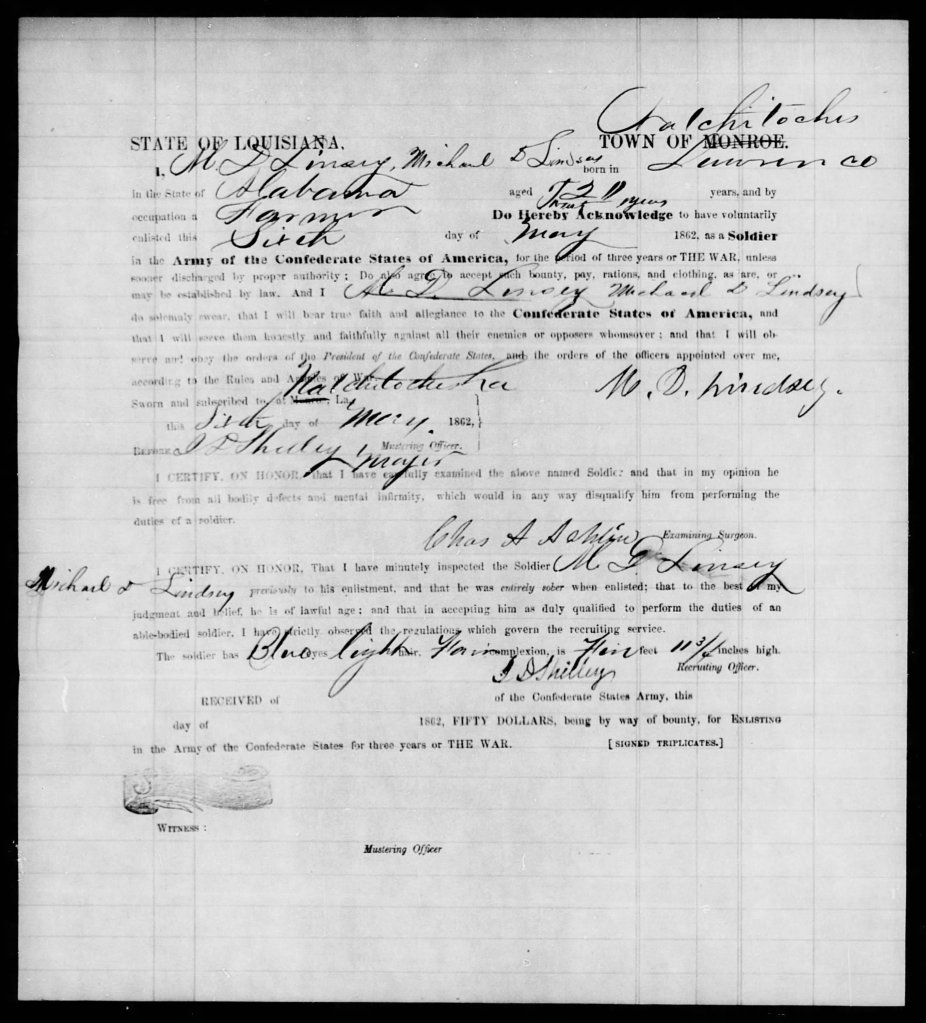 Natchitoches
STATE OF LOUISIANA, TOWN OF MONROE.
I, M. D. Linsey, Michael D Lindsey born in Lawrence co
in the State of Alabama aged years, and by
occupation a Farmer Do Hereby Acknowledge to have voluntarily
enlisted this Sixth day of May 1862, as a Soldier
in the Army of the Confederate States of America, for the period of three years or THE WAR, unless
sooner discharged by proper authority; Do also agree to accept such bounty, pay, rations, and clothing, as are, or
may be established by law. And I M. D. Linsey Michael D Lindsey
do solemnly swear, that I will bear true faith and allegiance to the Confederate States of America, and
that I will serve them honestly and faithfully against all their enemies or opposers whomsover; and that I will ob-
serve and obey the orders of the President of the Confederate States, and the orders of the officers appointed over me,
according to the Rules and Articles of War.
Natchitoches La M. D. Lindsey.
Sworn and subscribed to, at Monroe, La.
this Sixth day of May. 1862,
BEFORE J D Shelley Mustering Officer.
Mayor
I CERTIFY, ON HONOR, that I have carefully examined the above named Soldier and that in my opinion he
is free from all bodily defects and mental infirmity, which would in any way disqualify him from performing the
duties of a soldier.
Chas A Examining Surgeon.
I CERTIFY, ON HONOR, That I have minutely inspected the Soldier M D Linsey
Michael D Lindsey previously to his enlistment, and that he was entirely sober when enlisted; that to the best of my
judgment and belief, he is of lawful age; and that in accepting him as duly qualified to perform the duties of an
able-bodied soldier, I have strictly observed the regulations which govern the recruiting service.
The soldier has Blue eyes light hair, complexion, is feet 11 3/4 inches high.
J D Shelley Recruiting Officer.
RECEIVED of of the Confederate States Army, this
day of 1862, FIFTY DOLLARS, being by way of bounty, for ENLISTING
in the Army of the Confederate States for three years or THE WAR. [SIGNED TRIPLICATES.]
WITNESS:
Mustering Officer